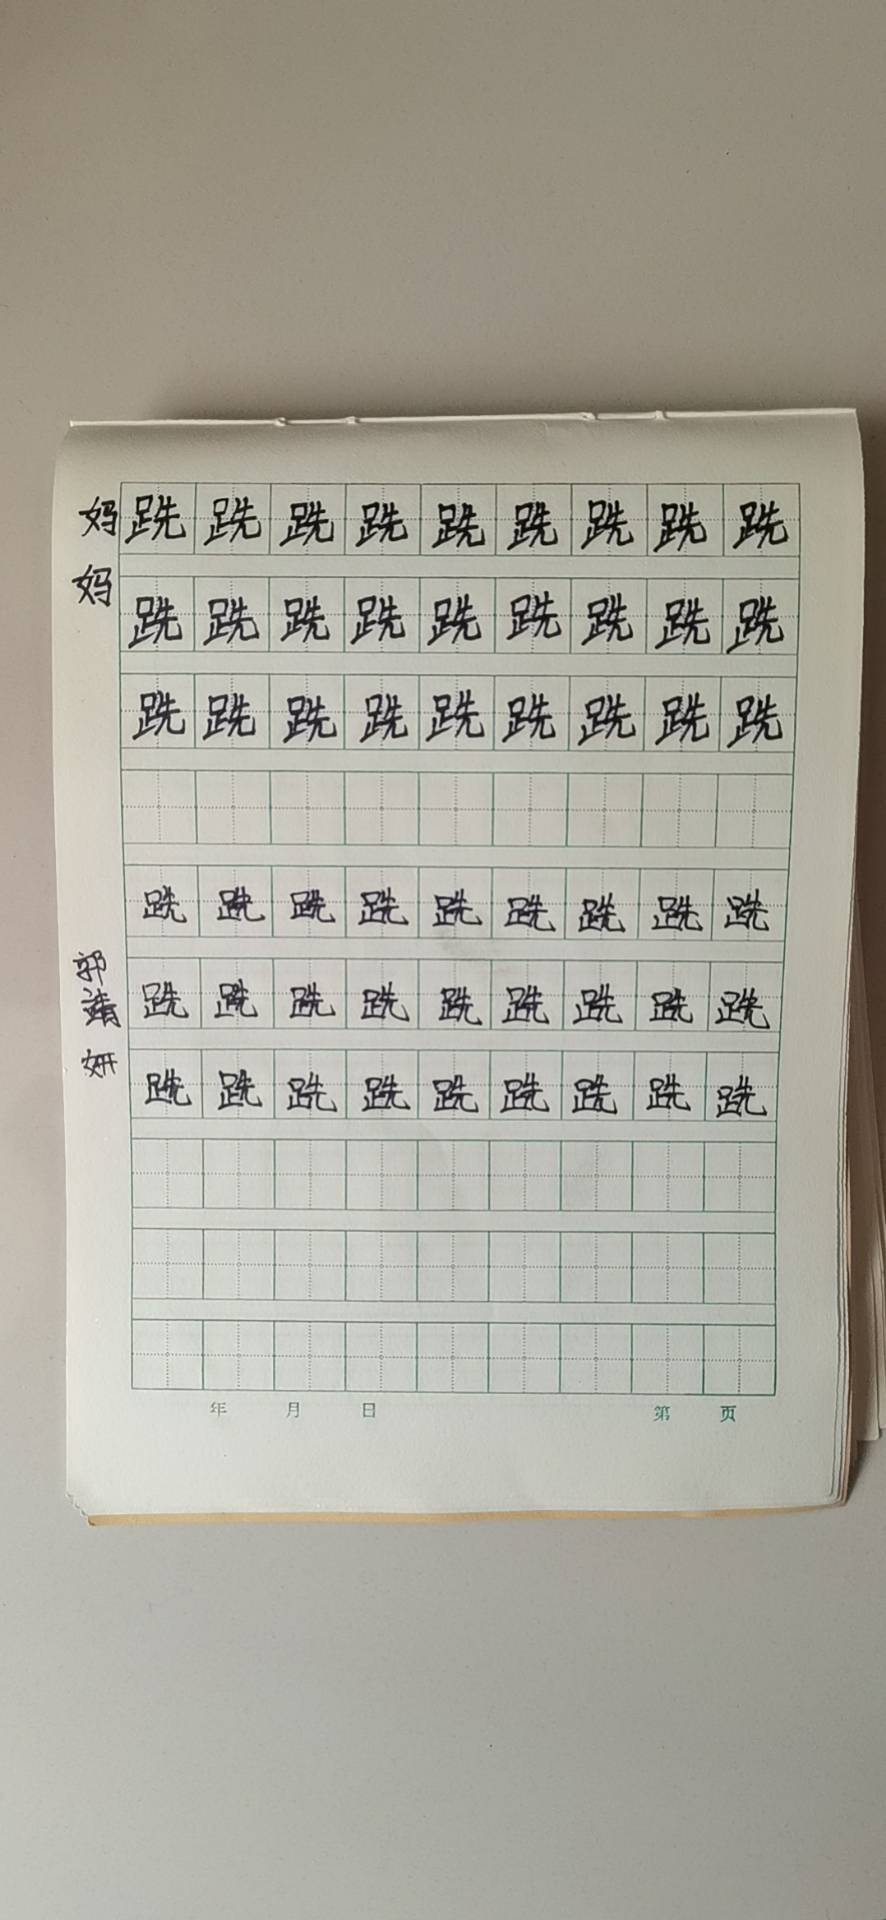 妈妈
跣跣跣跣跣跣跣跣跣
跣跣跣跣跣跣跣跣跣
跣跣跣跣跣跣跣跣跣
郭靖妍
跣跣跣跣跣跣跣跣跣
跣跣跣跣跣跣跣跣跣
跣跣跣跣跣跣跣跣跣
年 月 日 第 页